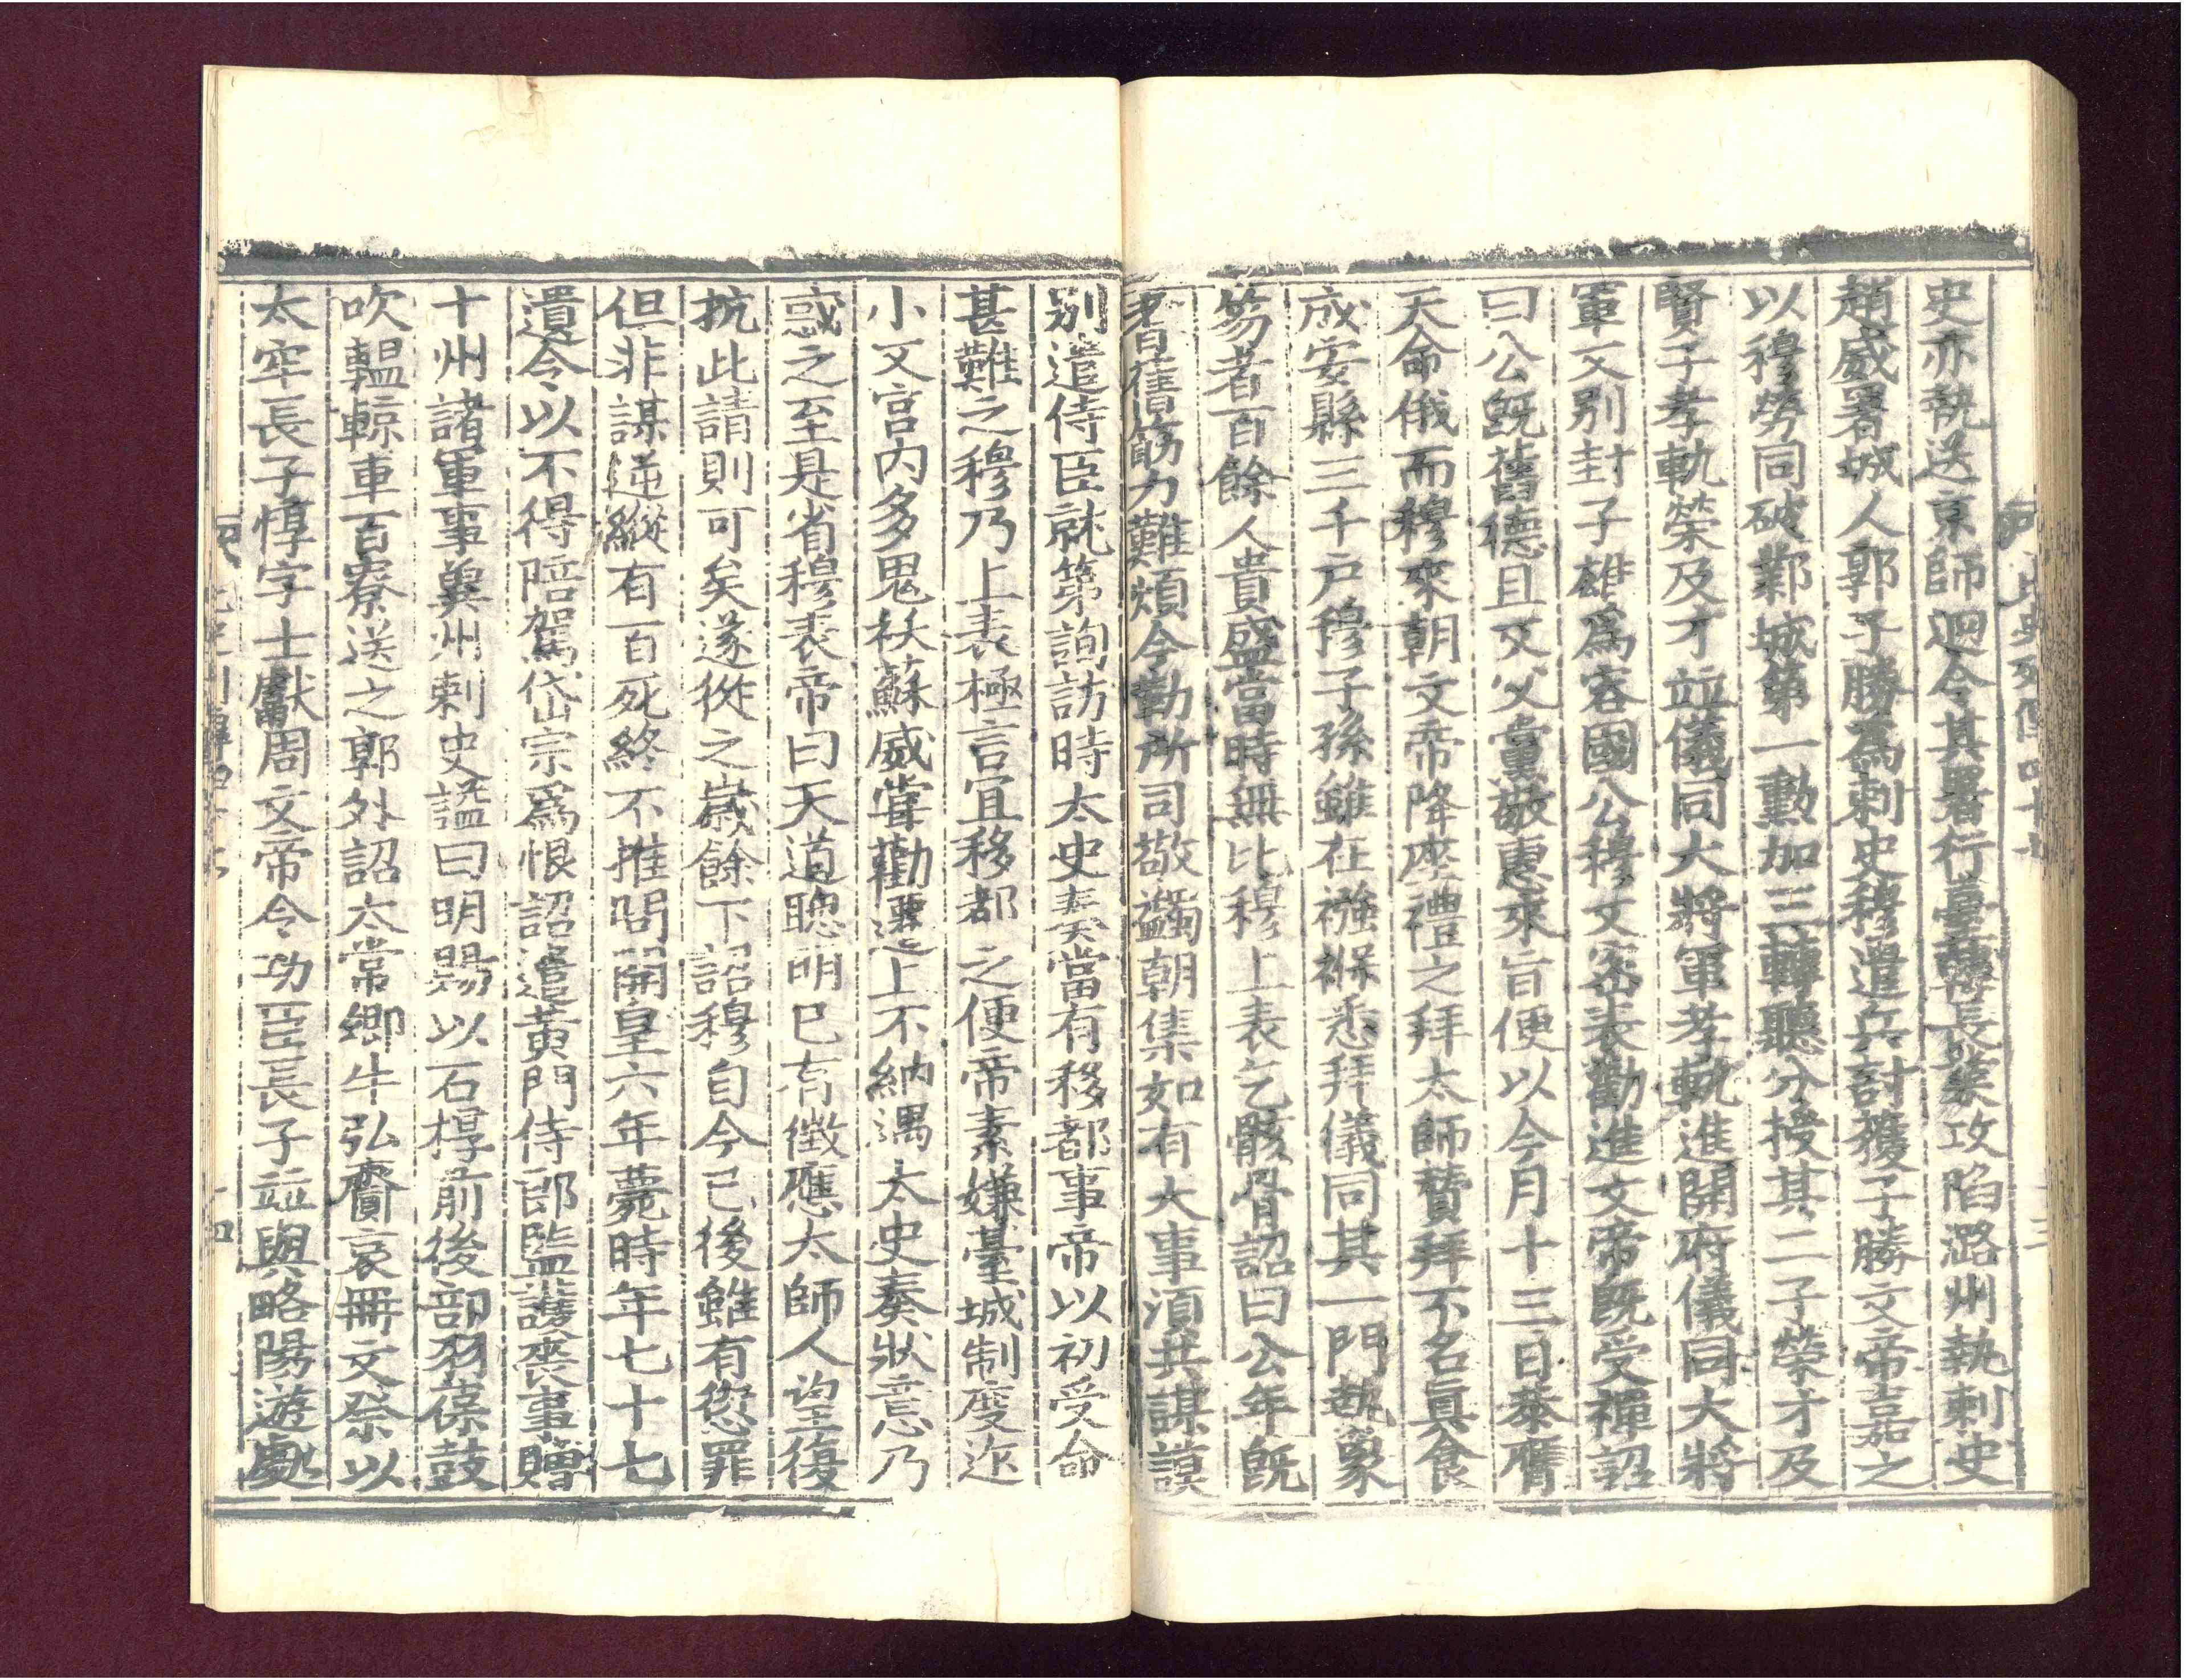 史亦執送京師迥令其署行臺韓長業攻陷潞州執刺史
趙威署城人郭子勝爲刺史穆遣兵討獲子勝文帝嘉之
以穆勞同破鄴城第一勳加三轉聽分授其二子榮才及
賢子孝軌榮及才並儀同大將軍孝軌進開府儀同大將
軍又别封子雄爲容國公穆又密表勸進文帝既受禪詔
曰公既舊德且又父黨敬惠來旨便以今月十三日恭膺
天命俄而穆來朝文帝降座禮之拜太師贊拜不名眞食
成安縣三千户穆子孫雖在襁褓悉拜儀同其一門執象
笏者百餘人貴盛當時無比穆上表乞骸骨詔曰公年既
耆舊筋力難煩今勒所司敬蠲朝集如有大事須共謀謨
别遣侍臣就第詢訪時太史奏當有移都事帝以初受命
甚難之穆乃上表極言宜移都之便帝素嫌臺城制度迮
小又宫内多鬼祅蘇威嘗勸遷上不納遇太史奏狀意乃
惑之至是省穆表帝曰天道聰明已有徵應太師人望復
抗此請則可矣遂從之歲餘下詔穆自今已後雖有愆罪
但非謀逆縱有百死終不推問開皇六年薨時年七十七
遺令以不得陪駕岱宗爲恨詔遣黄門侍郎監護喪事贈
十州諸軍事兾州刺史諡曰明賜以石椁前後部羽葆鼓
吹轀輬車百寮送之郭外詔太常卿牛弘齎哀冊文祭以
太牢長子惇字士獻周文帝令功臣長子並與略陽遊處